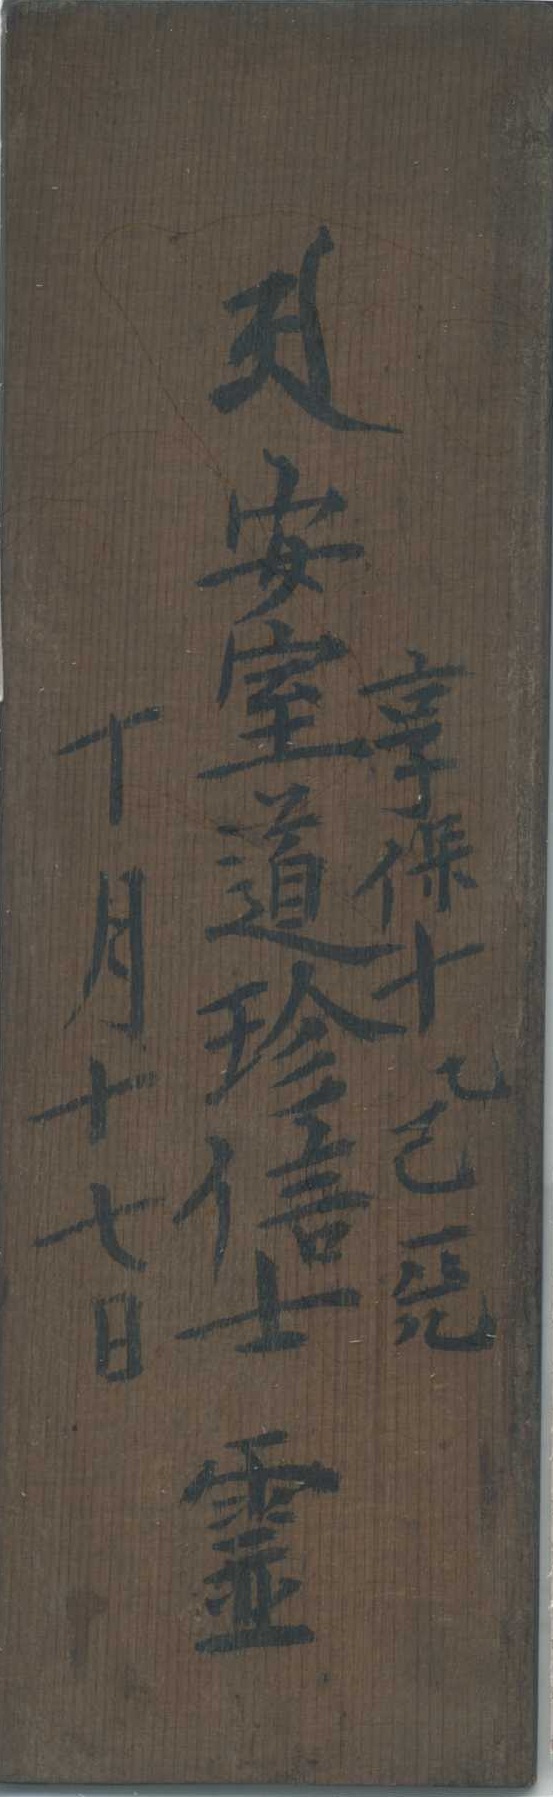 享保十乙巳
安室道珍信士 霊
十月十七日